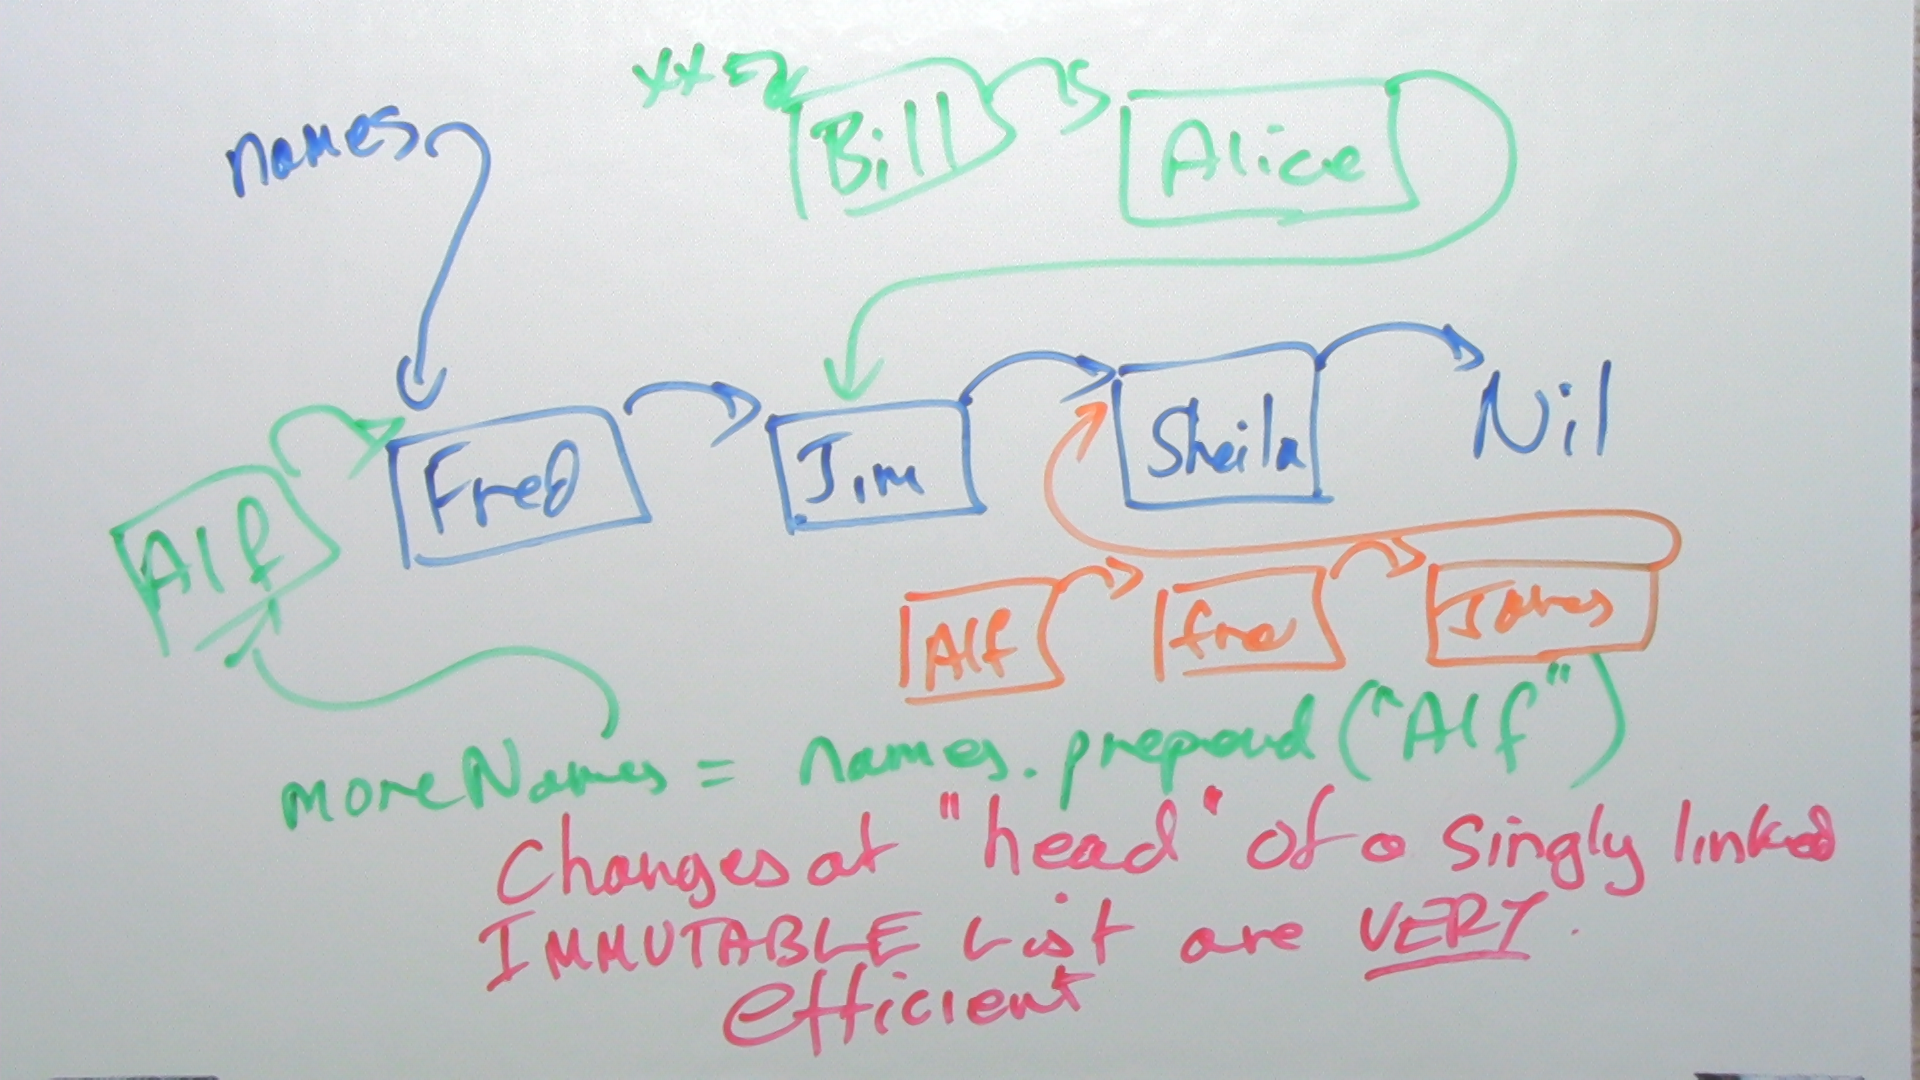 xx =
Bill
Alice
names
Fred
Jim
Sheila
Nil
Alf
Alf
fre
James
moreNames = names.prepend("Alf")
Changes at "head" of a singly linked
IMMUTABLE List are VERY
efficient